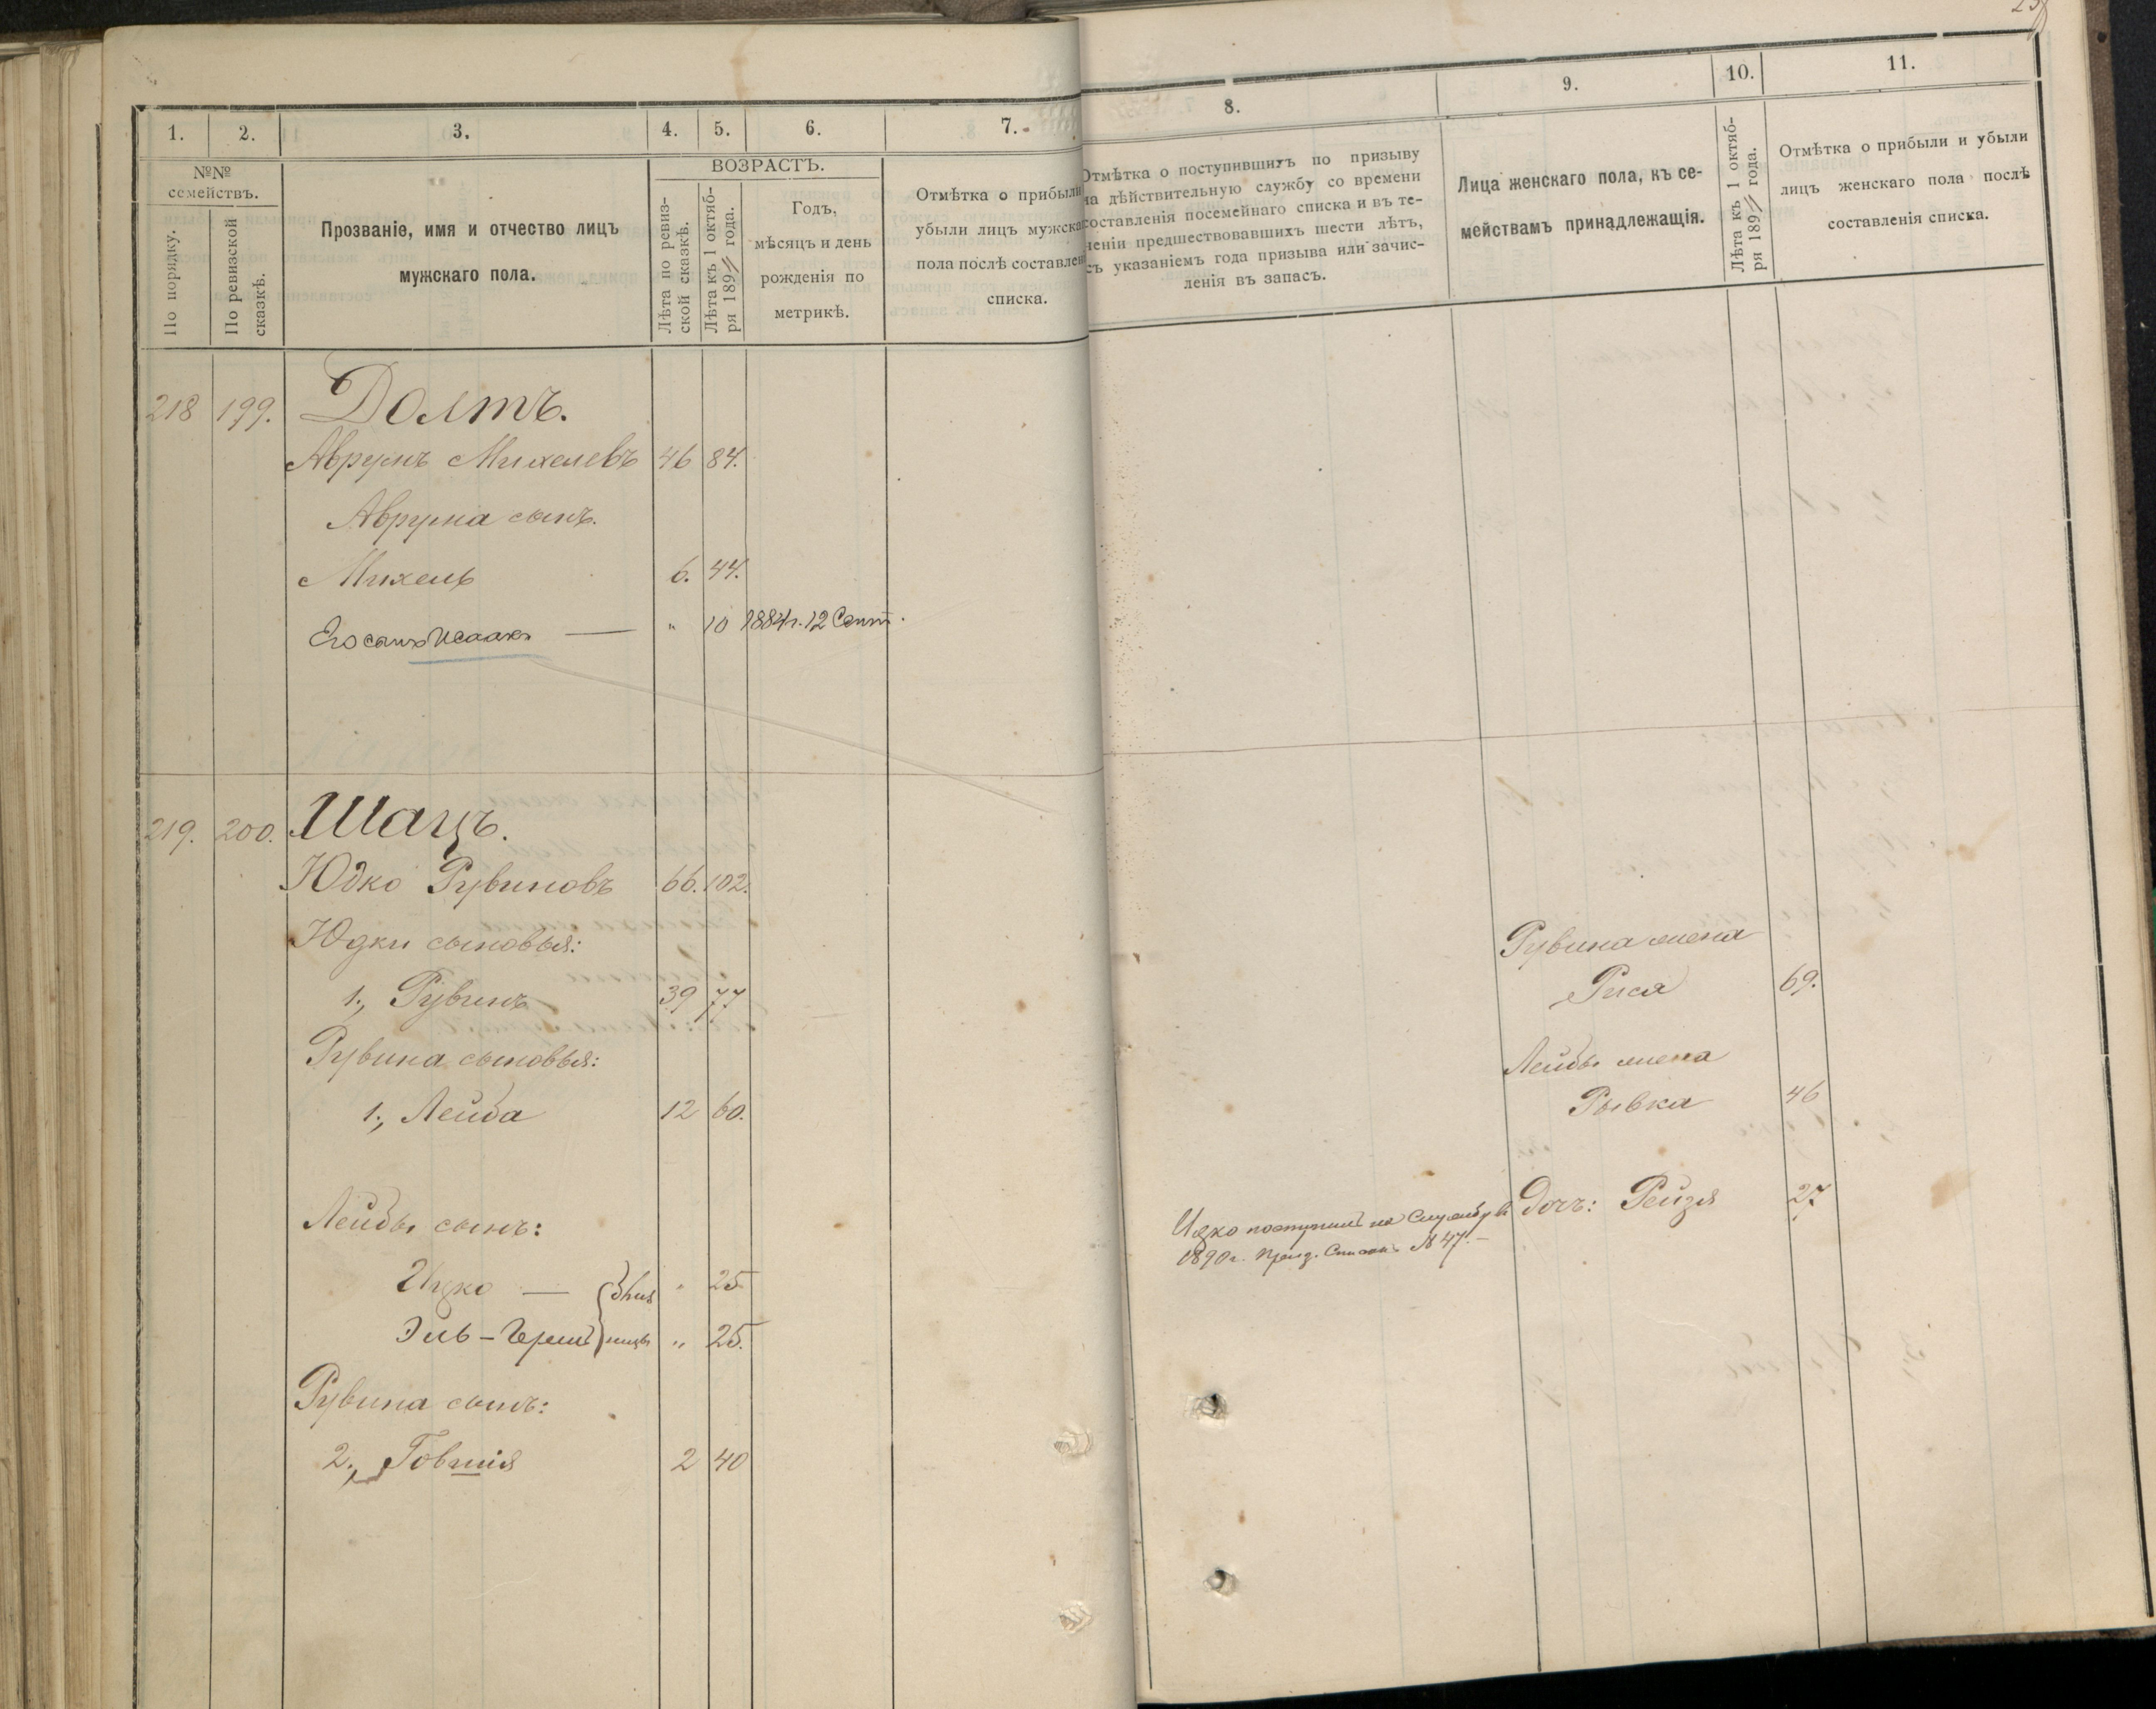 1.
2.
3.
4.
5.
6.
7.
8.
9.
10.
11.
№№ семействъ.
По порядку.
По ревизской сказкѣ.
Прозваніе, имя и отчество лицъ
мужскаго пола.
ВОЗРАСТЪ.
Лѣта по ревиз-
ской сказкѣ.
Лѣта къ 1 октяб-
ря 189 года.
Годъ,
мѣсяцъ и день
рожденія по
метрикѣ.
Отмѣтка о прибыли
убыли лицъ мужска
пола послѣ составлен
списка.
Отмѣтка о поступившихъ по призыву
на дѣйствительную службу со времени
составленія посемейнаго списка и въ те-
ченіи предшествовавшихъ шести лѣтъ,
съ указаніемъ года призыва или зачис-
ленія въ запасъ.
Лица женскаго пола, къ се-
мействамъ принадлежащія.
Лѣта къ 1 октяб-
ря 189 года.
Отмѣтка о прибыли и убыли
лицъ женскаго пола послѣ
составленія списка.
218 199. Долтъ.
Аврумъ Михелевъ 46 84.
Аврума сынъ.
Михель 6. 44.
Его сынъ Исаакъ — " 10 1884 г. 12 Сент.
219. 200. Шацъ.
Юдко Рувиновъ 66. 102.
Юдки сыновья:
1., Рувинъ 39 77
Рувина сыновья:
1., Лейба 12 60.
Лейбы сынъ:
Ицко — } близ " 25
Эль-Гершъ } нецы " 25.
Рувина сынъ:
2., Говшія 2 40
Рувина жена
Рися 69.
Лейбы жена
Рывка 46
Дочь: Рейзя 27
Ицко поступилъ на Службу въ
1890 г. Приз. Списокъ № 47.—